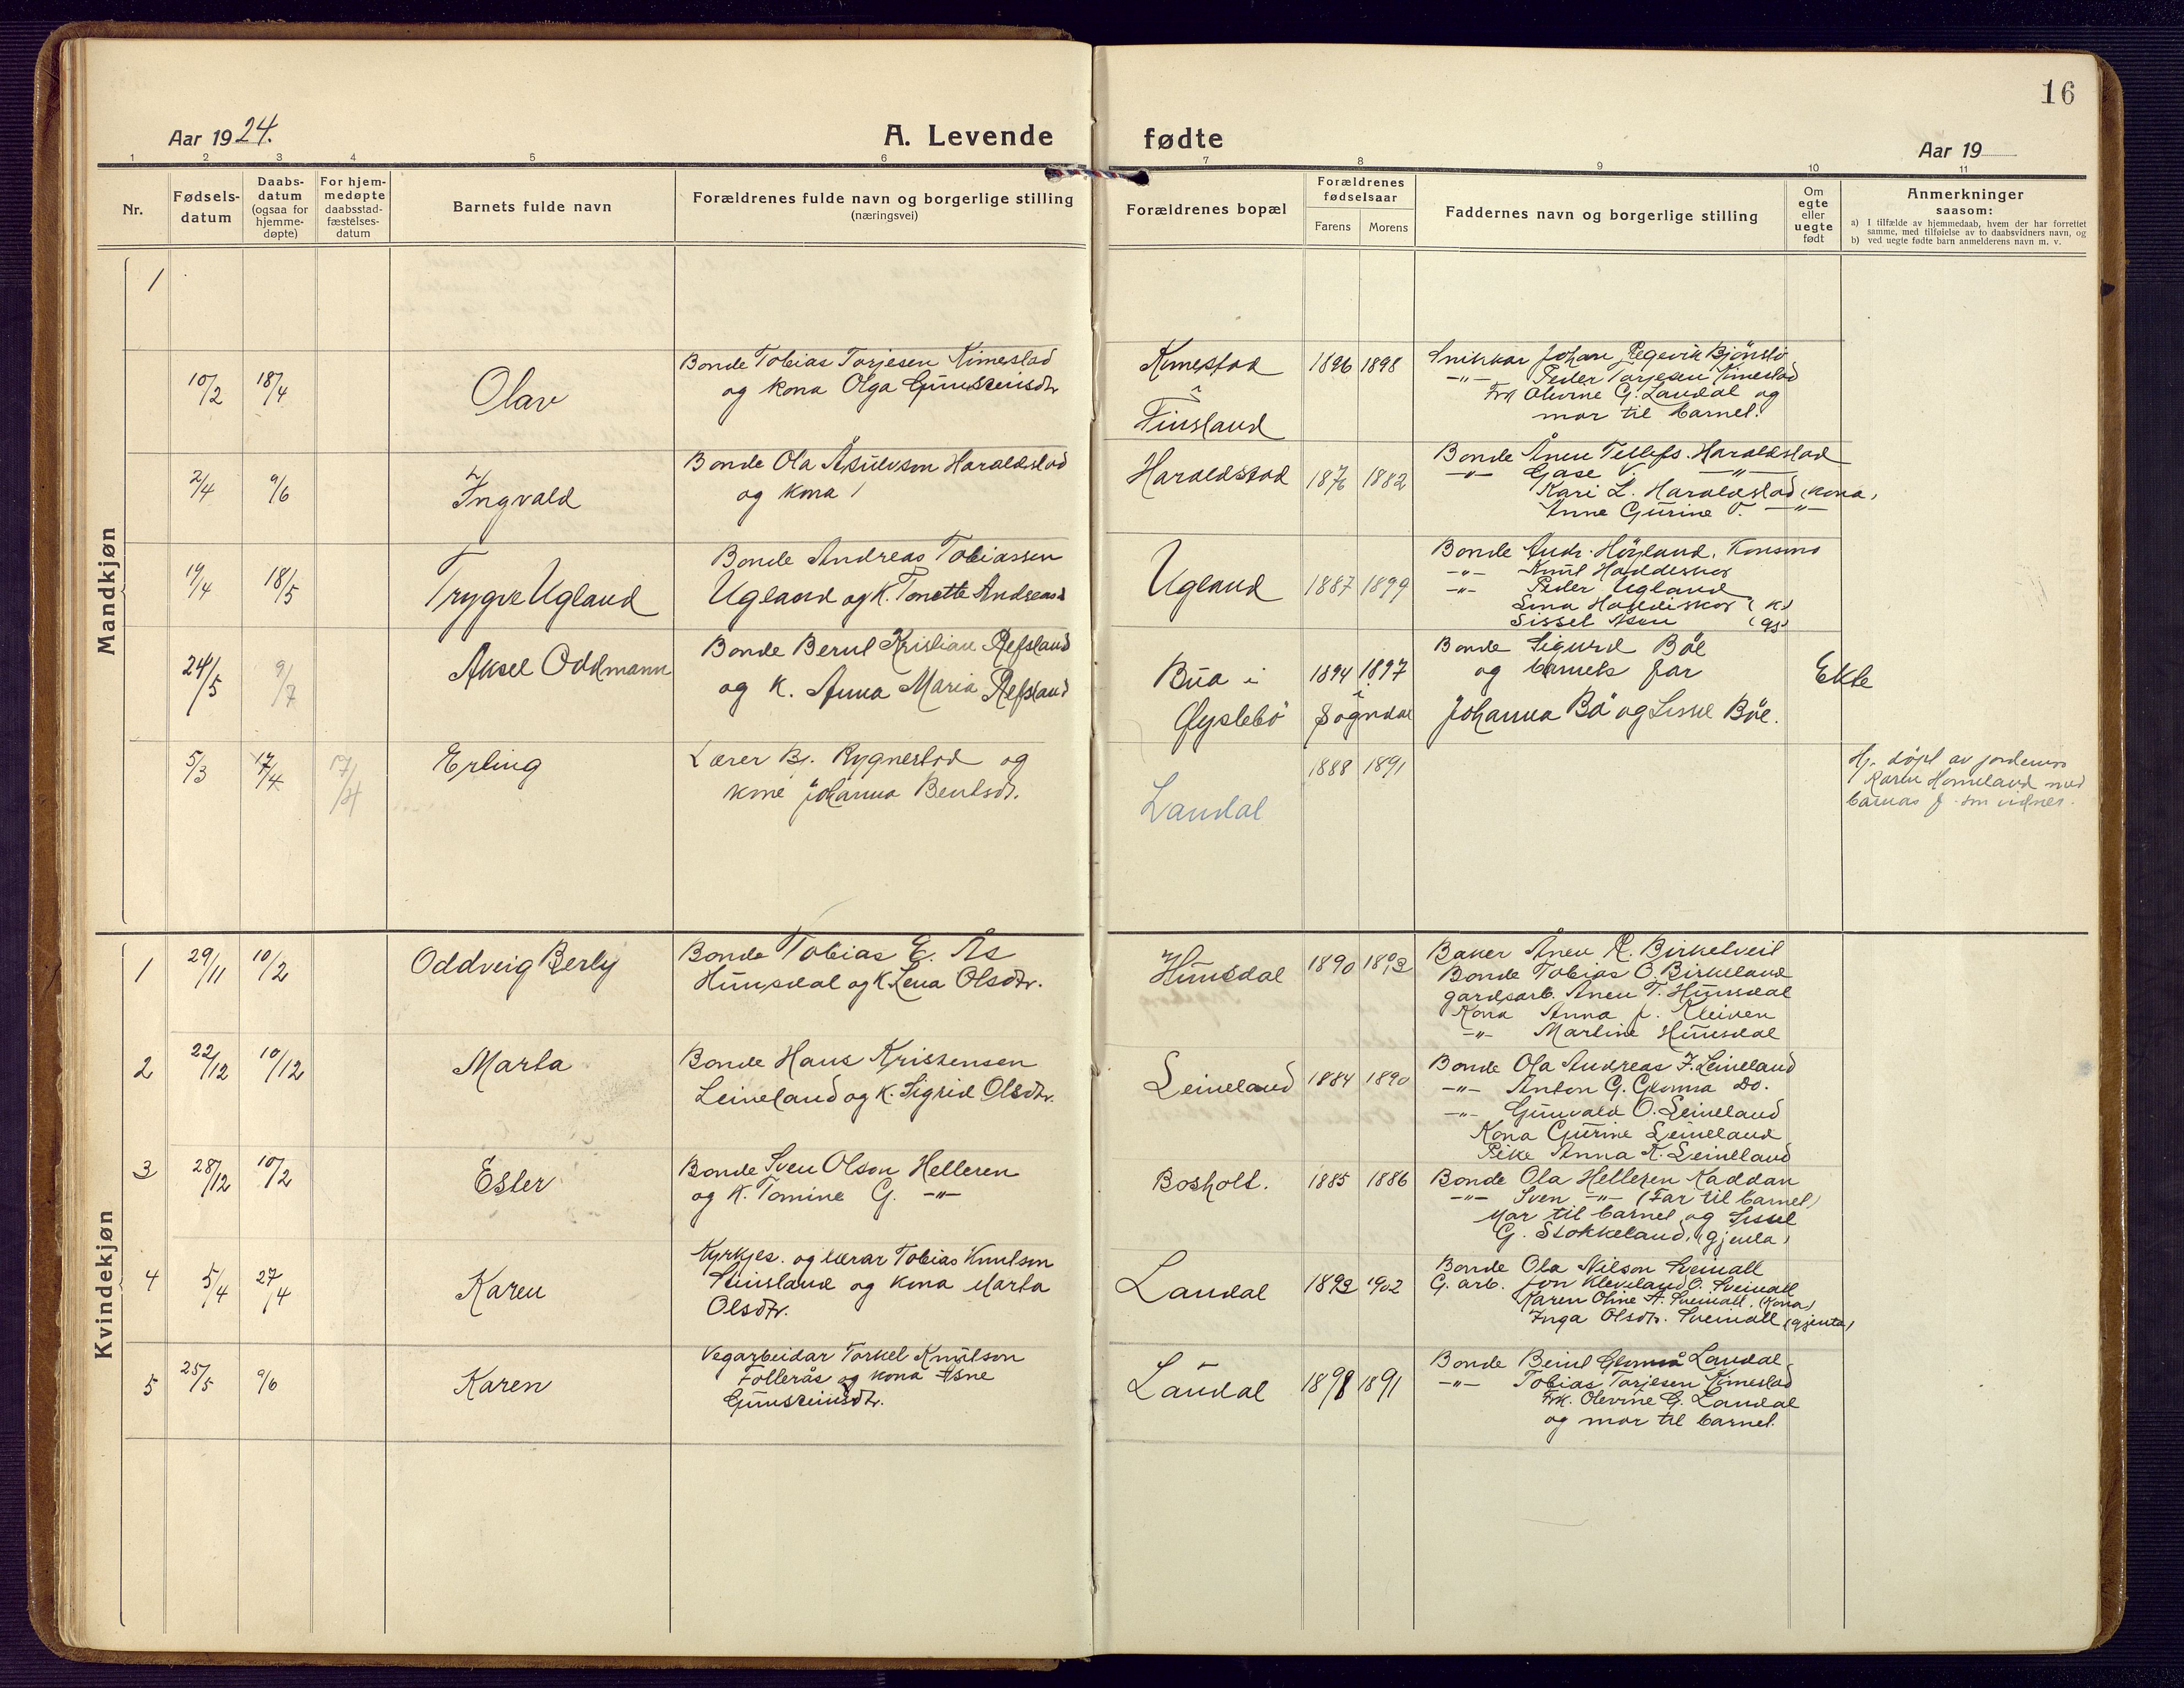 16
Aar 1924.
A. Levende
fødte
Aar 19
1 2 3 4 5 6 7 8 9 10 11
Nr.
Fødsels-
datum
Daabs-
datum
(ogsaa for
hjemme-
døpte)
For hjem-
medøpte
daabsstad-
fæstelses-
datum
Barnets fulde navn
Forældrenes fulde navn og borgerlige stilling
(næringsvei)
Forældrenes bopæl
Forældrenes
fødselsaar
Farens
Morens
Faddernes navn og borgerlige stilling
Om
egte
eller
uegte
født
Anmerkninger
saasom:
a) I tilfælde av hjemmedaab, hvem der har forrettet
samme, med tilføielse av to daabsvidners navn, og
b) ved uegte fødte barn anmelderens navn m. v.
Mandkjøn
1
10/2 18/4
Olav
Bonde Tobias Torjesen Kimestad
og kona Olga Gunsteinsdtr
Kimestad
i
Finsland
1896 1898
Snikkar Johan Regevik Bjönstö
-"- Peder Torjesen Kimestad
Frk Olevine G. Laudal og
mor til barnet.
2/4 9/6
Ingvald
Bonde Ola Åsulvson Haraldstad
og kona
Haraldstad
1876 1882
Bonde Ånen Tellefs. Haraldstad
-"- Gase V. -"-
Kari L. Haraldstad (kona)
Anne Gurine V. -"-
19/4 18/5
Trygve Ugland
Bonde Andreas Tobiassen
Ugland og K. Tonette Andreasd
Ugland
1887 1899
Bonde Andr. Höyland, Konsmo
-"- Knut Haddeskog
-"- Peder Ugland
Lina Haddeskog (K)
Sissel Åsen (gj)
24/5 9/7
Aksel Oddmann
Bonde Bernt Kristian Refsland
og K. Anna Maria Refsland
Bua i
Øyslebö
1894 1897
i
Sogndal
Bonde Sigurd Böe
og barnets far
Johanna Bö og Lisse Böe.
Ekte
5/3 17/4 17/4
Erling
Lærer Bj. Rygnestad og
kone Johanna Bentsdr.
Laudal
1888 1891
Hj. döpt av jordmor
Karen Homeland med
barnas f. som vidner.
Kvindekjøn
1 29/11 10/2
Oddveig Berly
Bonde Tobias E. Ås
Hunsdal og K. Lena Olsdtr.
Hunsdal
1890 1893
Baker Ånen R. Birkelveit
Bonde Tobias O. Birkeland
gardsarb. Ånen T. Hunsdal
Kona Anna J. Kleiven
-"- Martine Hunsdal
2 22/12 10/12
Marta
Bonde Hans Kristensen
Leineland og K. Sigrid Olsdtr.
Leineland
1884 1890
Bonde Ola Andreas F. Leineland
-"- Anton G. Glomsa Do.
-"- Gunvald O. Leineland
Kona Gurine Leineland
Pike Anna K. Leineland
3 28/12 10/2
Ester
Bonde Sven Olson Helleren
og K. Tomine G. -"-
Bosholt.
1885 1886
Bonde Ola Helleren Kaddan
-"- Sven -"- (Far til barnet)
Mor til barnet og Sissel
G. Stokkeland, (gjenta)
4 5/4 27/4
Karen
Kyrkjes. og lærar Tobias Knutson
Stiusland og kona Marta
Olsdtr.
Laudal
1893 1902
Bonde Ola Nilson Sveinall
G. arb. Jon Kleveland O. Sveinall
Karen Oline A. Sveinall (Kona)
Inga Olsdtr. Sveinall (gjenta)
5 25/5 9/6
Karen
Vegarbeidar Torkel Knutson
Follerås og kona Åsne
Gunsteinsdtr.
Laudal
1898 1891
Bonde Beint Glomså Laudal
-"- Tobias Torjesen Kimestad
Frk. Olevine G. Laudal
og mor til barnet.